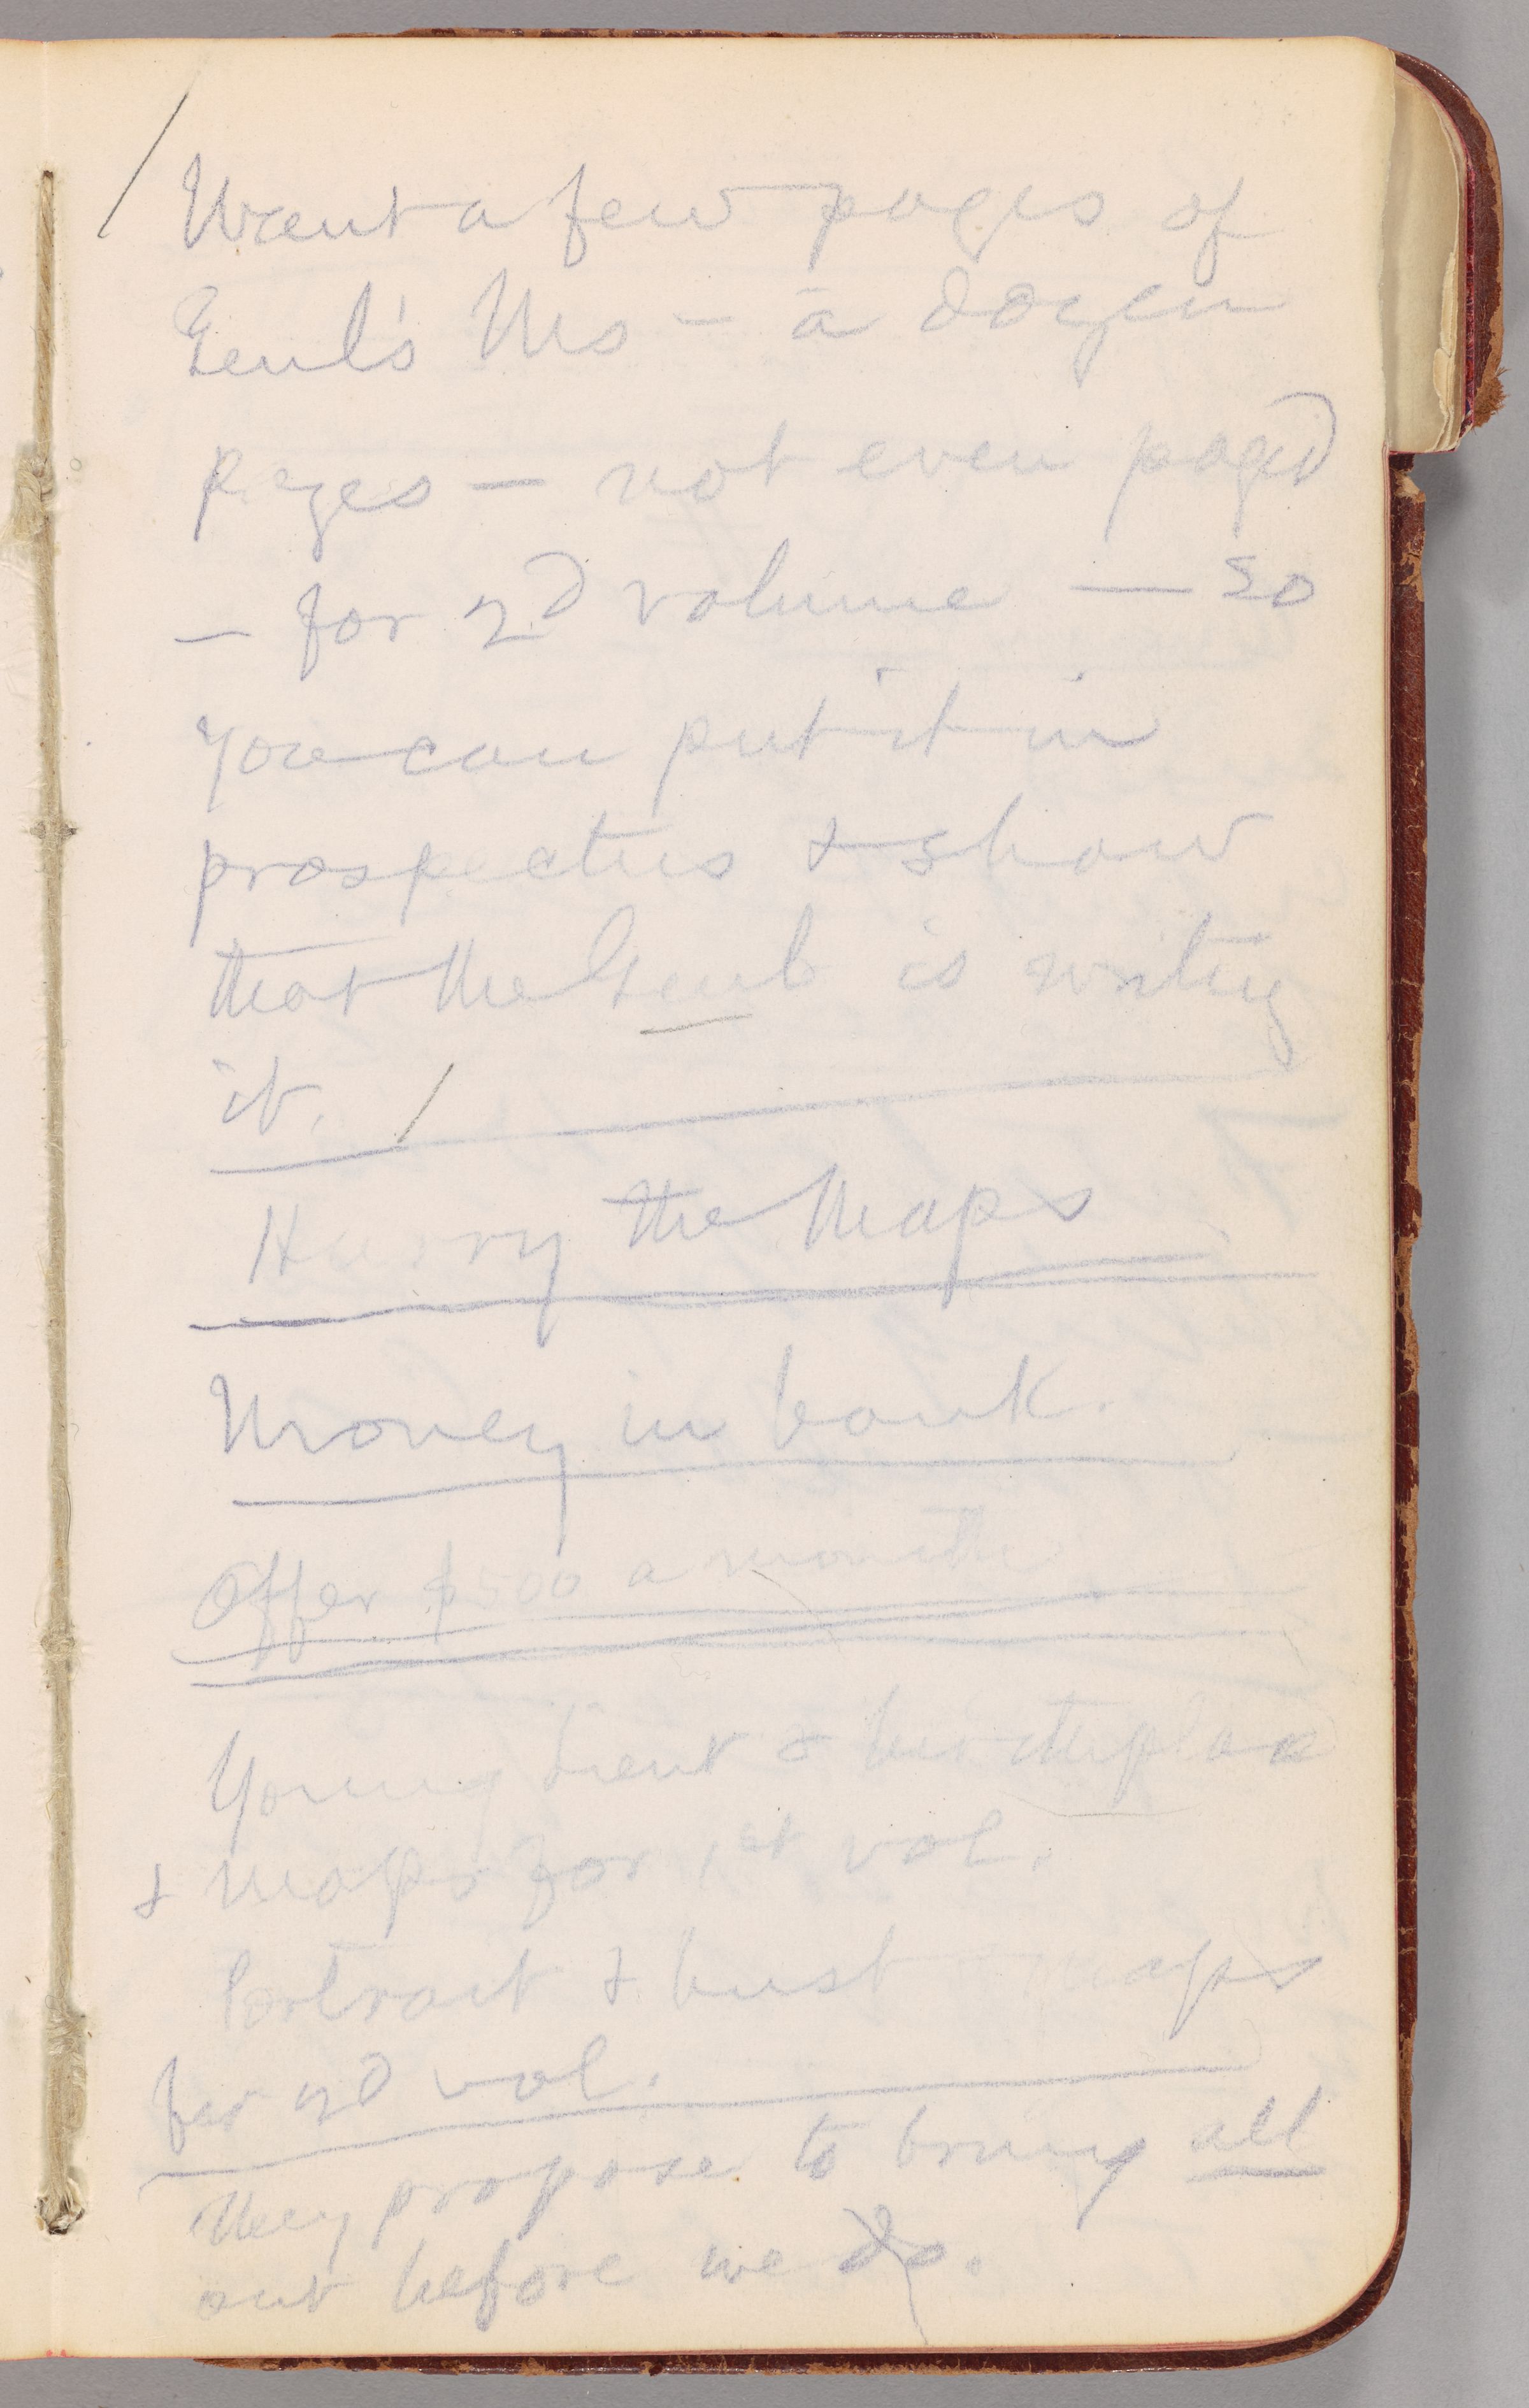 Want a few pages of
Genl's Ms — a dozen
pages — not even paged
— for 2d volume — so
you can put it in
prospectus & show
that the Genl is writing
it. /
Hurry the Maps
Money in bank.
Offer $500 a month
Young Lieut & birthplace
& maps for 1st vol.
Portrait & bust maps
for 2d vol.
They propose to bring all
out before we do.